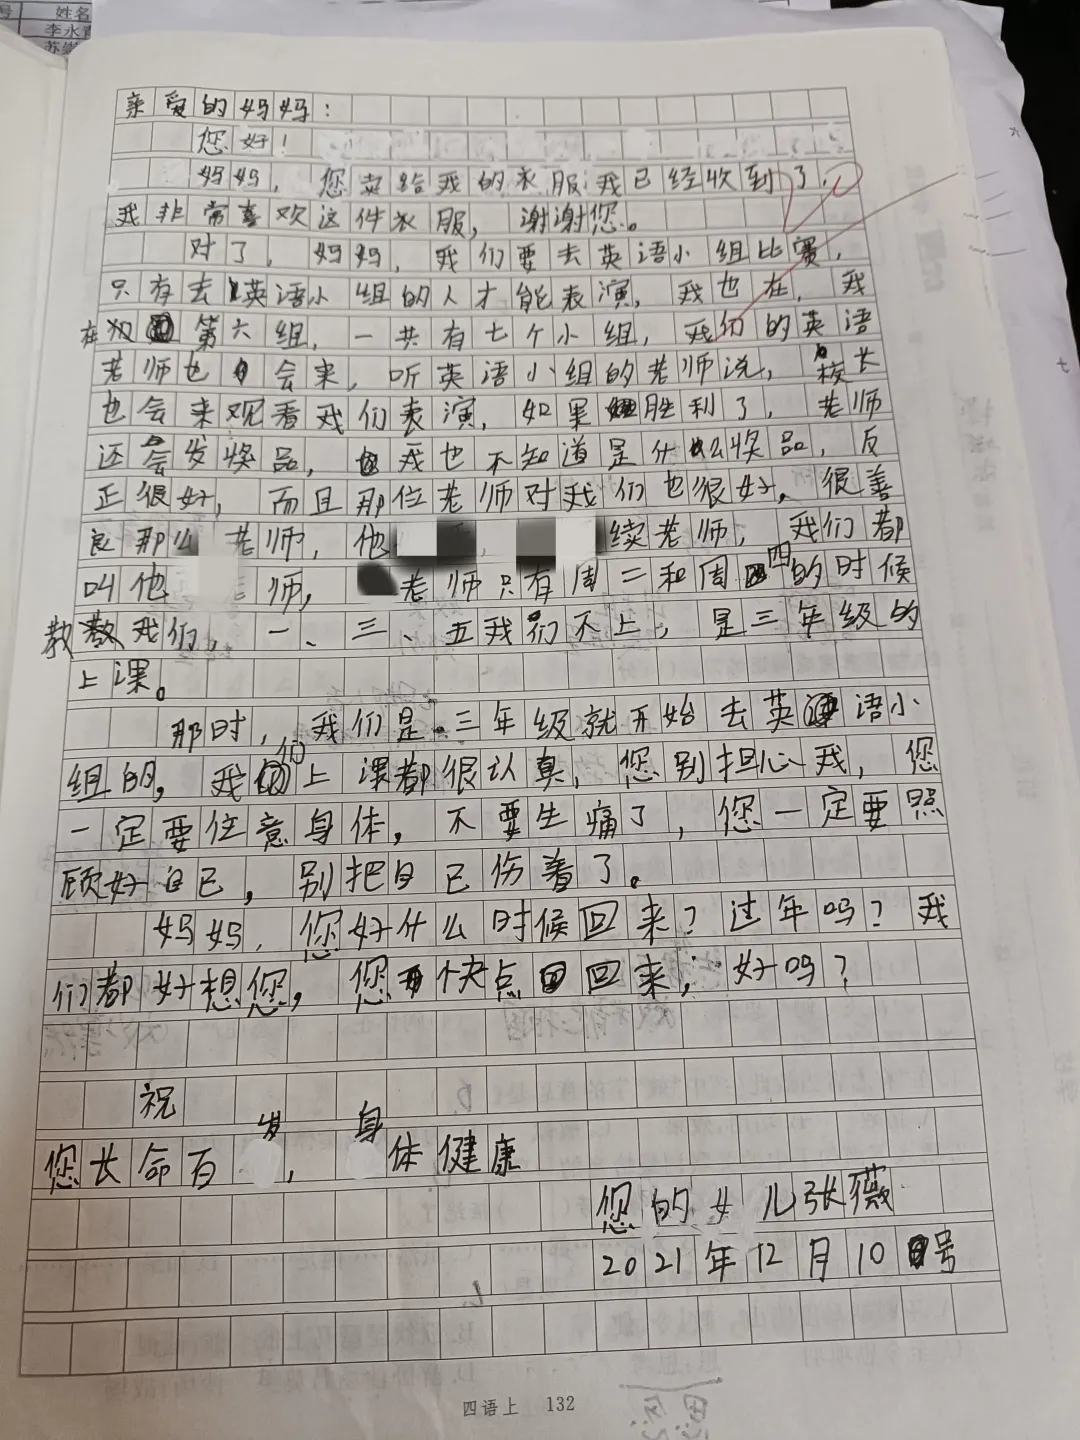 姓名
李永
亲爱的妈妈：
您好！
妈妈，您卖给我的衣服我已经收到了，
我非常喜欢这件衣服，谢谢您。
对了，妈妈，我们要去英语小组比赛，
只有去英语小组的人才能表演，我也在，我
在第六组，一共有七个小组，我们的英语
老师也会来，听英语小组的老师说，校长
也会来观看我们表演，如果胜利了，老师
还会发奖品，我也不知道是什么奖品，反
正很好，而且那位老师对我们也很好，很善
良那么老师，他续老师，我们都
叫他师，老师只有周二和周四的时候
教我们，一、三、五我们不上，是三年级的
上课。
那时，我们是三年级就开始去英语小
组的，我们上课都很认真，您别担心我，您
一定要位意身体，不要生痛了，您一定要照
顾好自己，别把自己伤着了。
妈妈，您好什么时候回来？过年吗？我
们都好想您，您快点回来，好吗？
祝
您长命百发，身体健康
您的女儿张薇
2021年12月10号
四语上 132